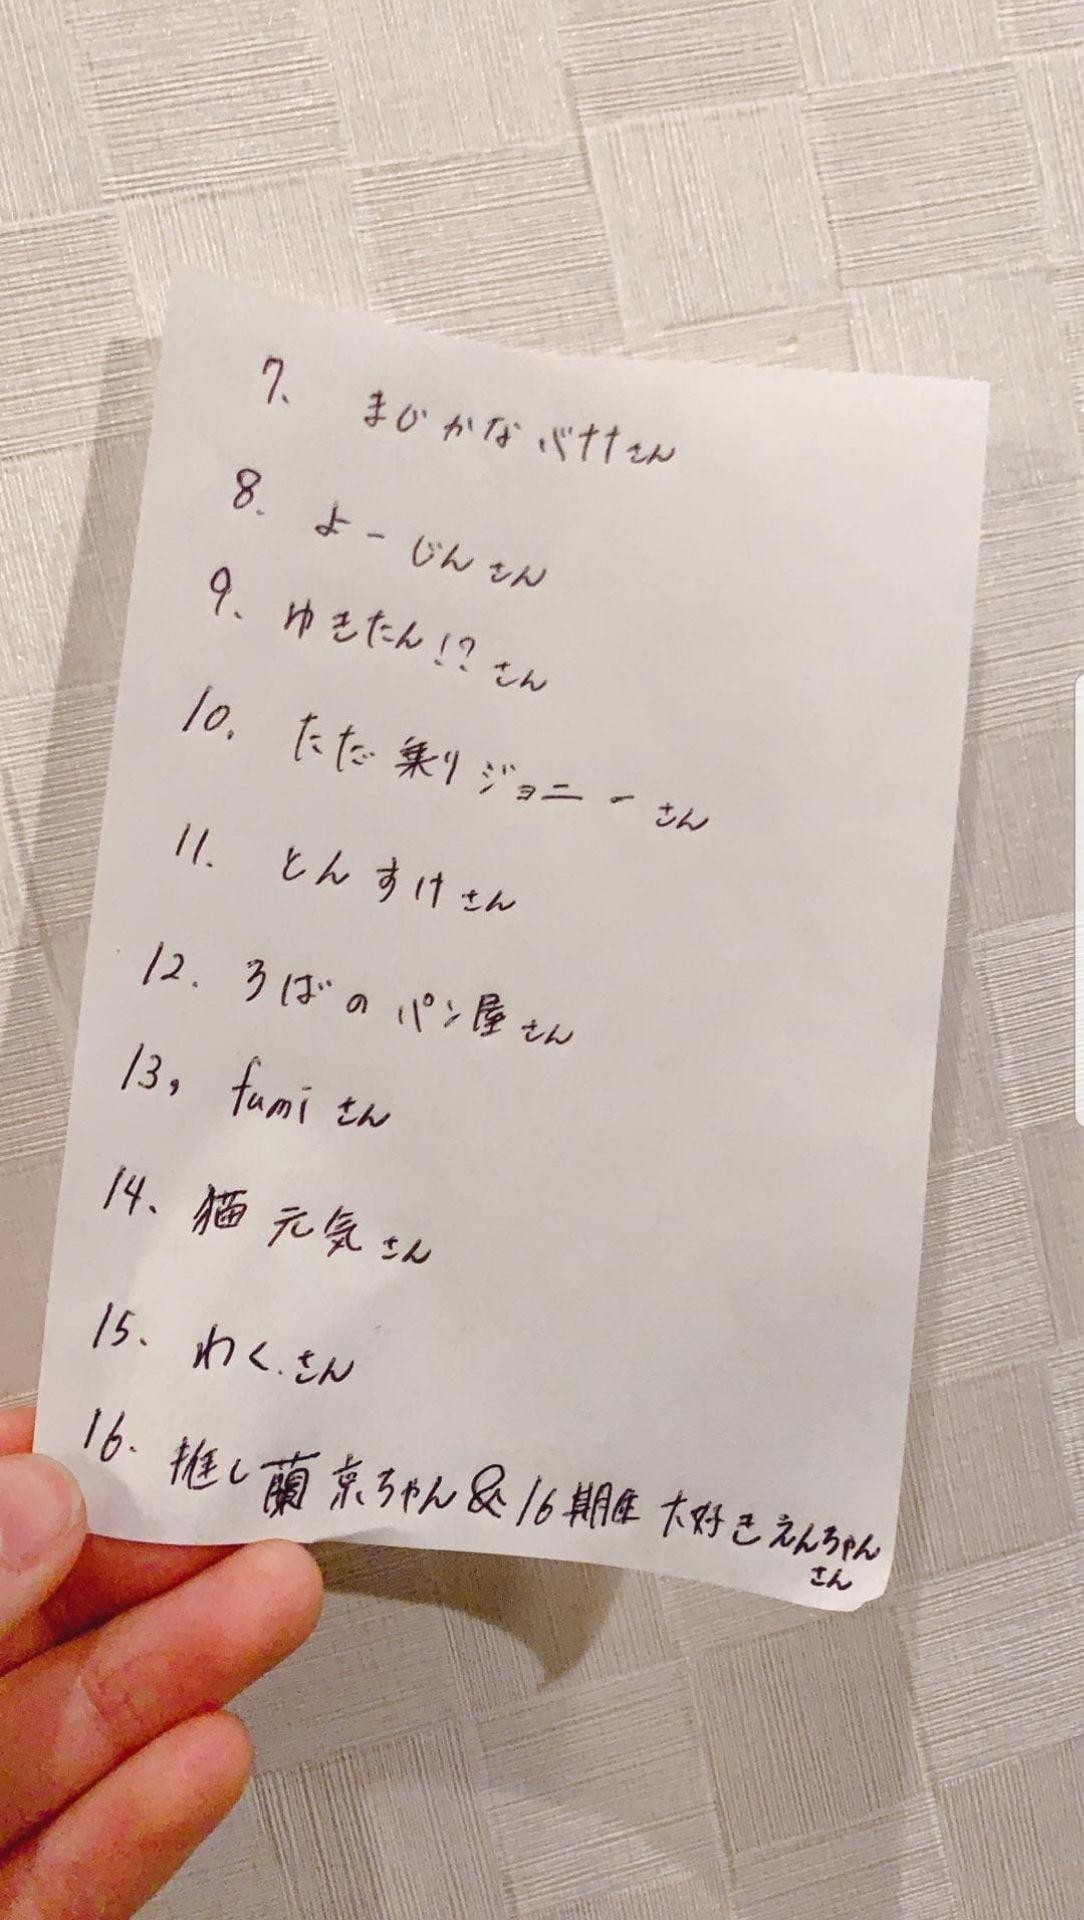 7、 まじかなバナナさん
8. よーじんさん
9、 ゆきたん!?さん
10、 ただ乗りジョニーさん
11、 とんすけさん
12、 ろばのパン屋さん
13, fumiさん
14、 猫元気さん
15、 わく.さん
16、 推し蘭京ちゃん&16期生大好きえんちゃん
さん